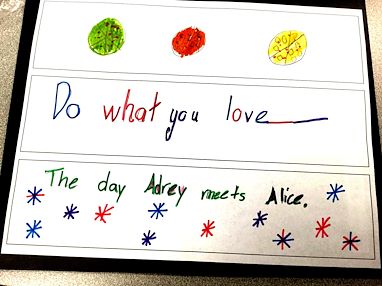 Do what you love
The day Adrey meets Alice.